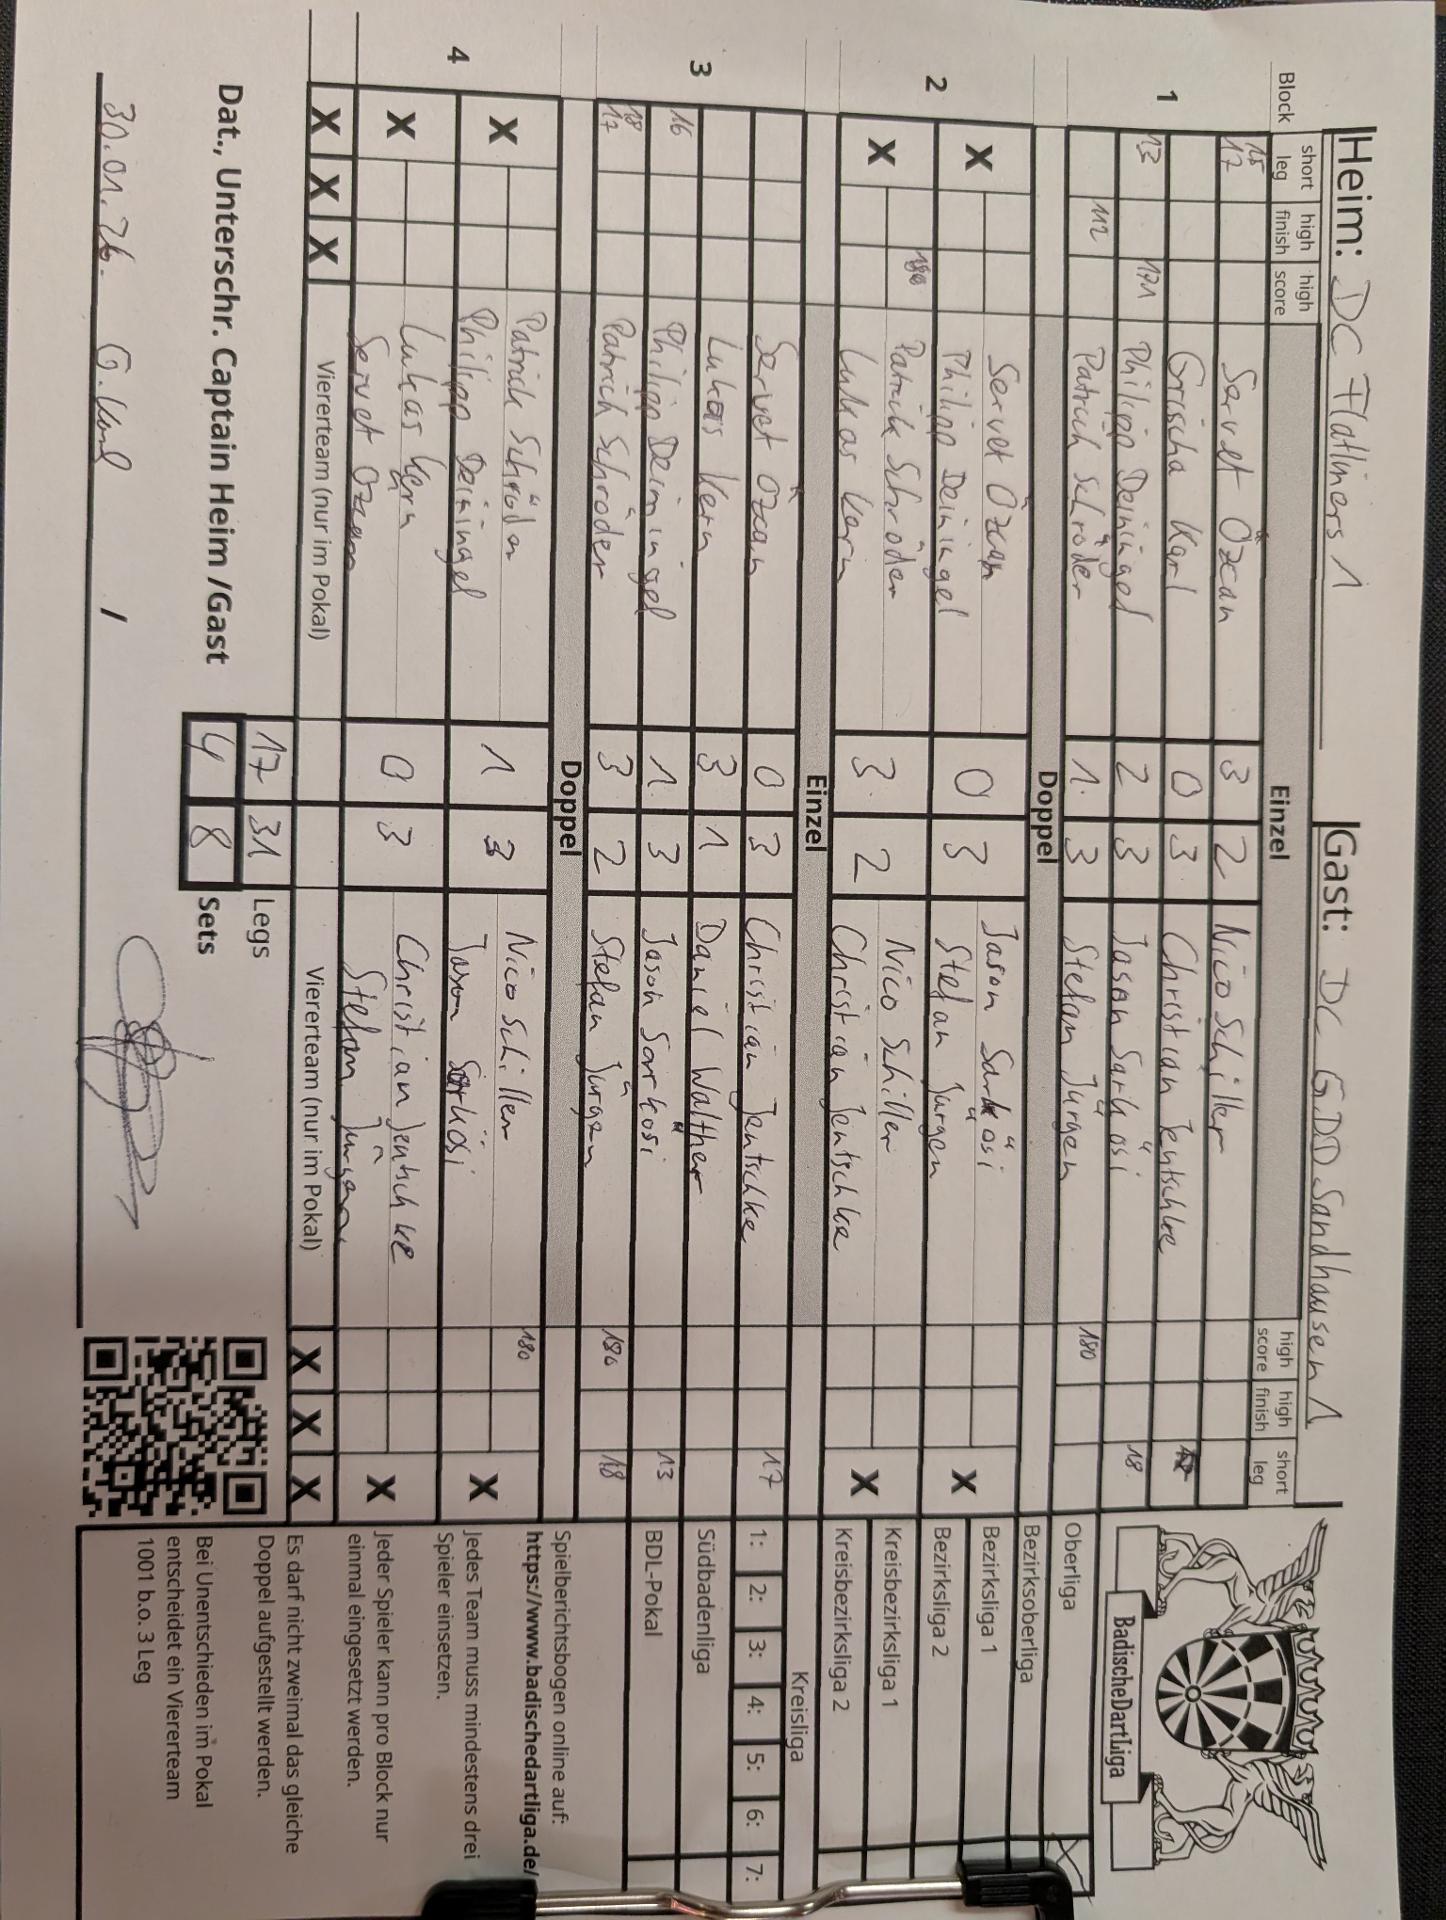 Heim: DC Flatliners 1 Gast: DC GDD Sandhausen 1
Block short leg high finish high score Einzel high score high finish short leg
1
15 17 Servet Özcan 3 2 Nico Schiller
Grischa Karl 0 3 Christian Jentschke
13 171 Philipp Deiningel 2 3 Jason Sarkösi 18
112 Patrick Schröder 1 3 Stefan Jürgen 180
Doppel
2
X Servet Özcan 0 3 Jason Sarkösi X
Philipp Deiningel Stefan Jürgen
X 180 Patrick Schröder 3 2 Nico Schiller X
Lukas Kern Christian Jentschke
Einzel
3
Servet Özcan 0 3 Christian Jentschke 17
Lukas Kern 3 1 Daniel Walther
16 Philipp Deiningel 1 3 Jason Sarkösi 13
18 17 Patrick Schröder 3 2 Stefan Jürgen 180 18
Doppel
4
X Patrick Schröder 1 3 Nico Schiller 180 X
Philipp Deiningel Jason Sarkösi
X Lukas Kern 0 3 Christian Jentschke X
Servet Özcan Stefan Jürgen
X X X Viererteam (nur im Pokal) Viererteam (nur im Pokal) X X X
17 31 Legs
Dat., Unterschr. Captain Heim /Gast 4 8 Sets
30.01.26. G. Karl /
BadischeDartLiga
Oberliga X
Bezirksoberliga
Bezirksliga 1
Bezirksliga 2
Kreisbezirksliga 1
Kreisbezirksliga 2
Kreisliga
1: 2: 3: 4: 5: 6: 7:
Südbadenliga
BDL-Pokal
Spielberichtsbogen online auf:
https://www.badischedartliga.de/
Jedes Team muss mindestens drei
Spieler einsetzen.
Jeder Spieler kann pro Block nur
einmal eingesetzt werden.
Es darf nicht zweimal das gleiche
Doppel aufgestellt werden.
Bei Unentschieden im Pokal
entscheidet ein Viererteam
1001 b.o. 3 Leg